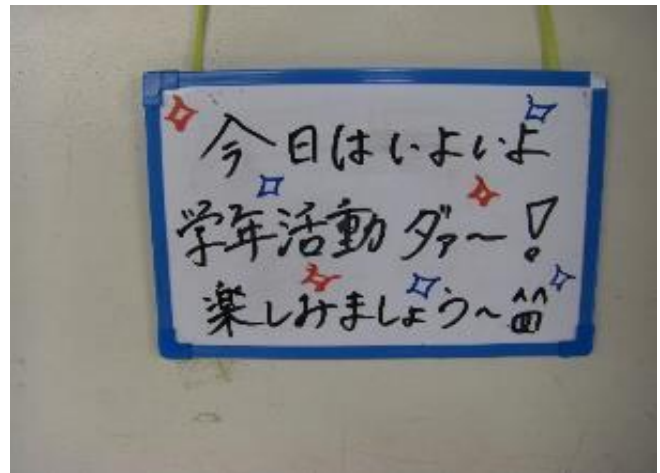 今日はいよいよ
学年活動ダァ〜!
楽しみましょう〜